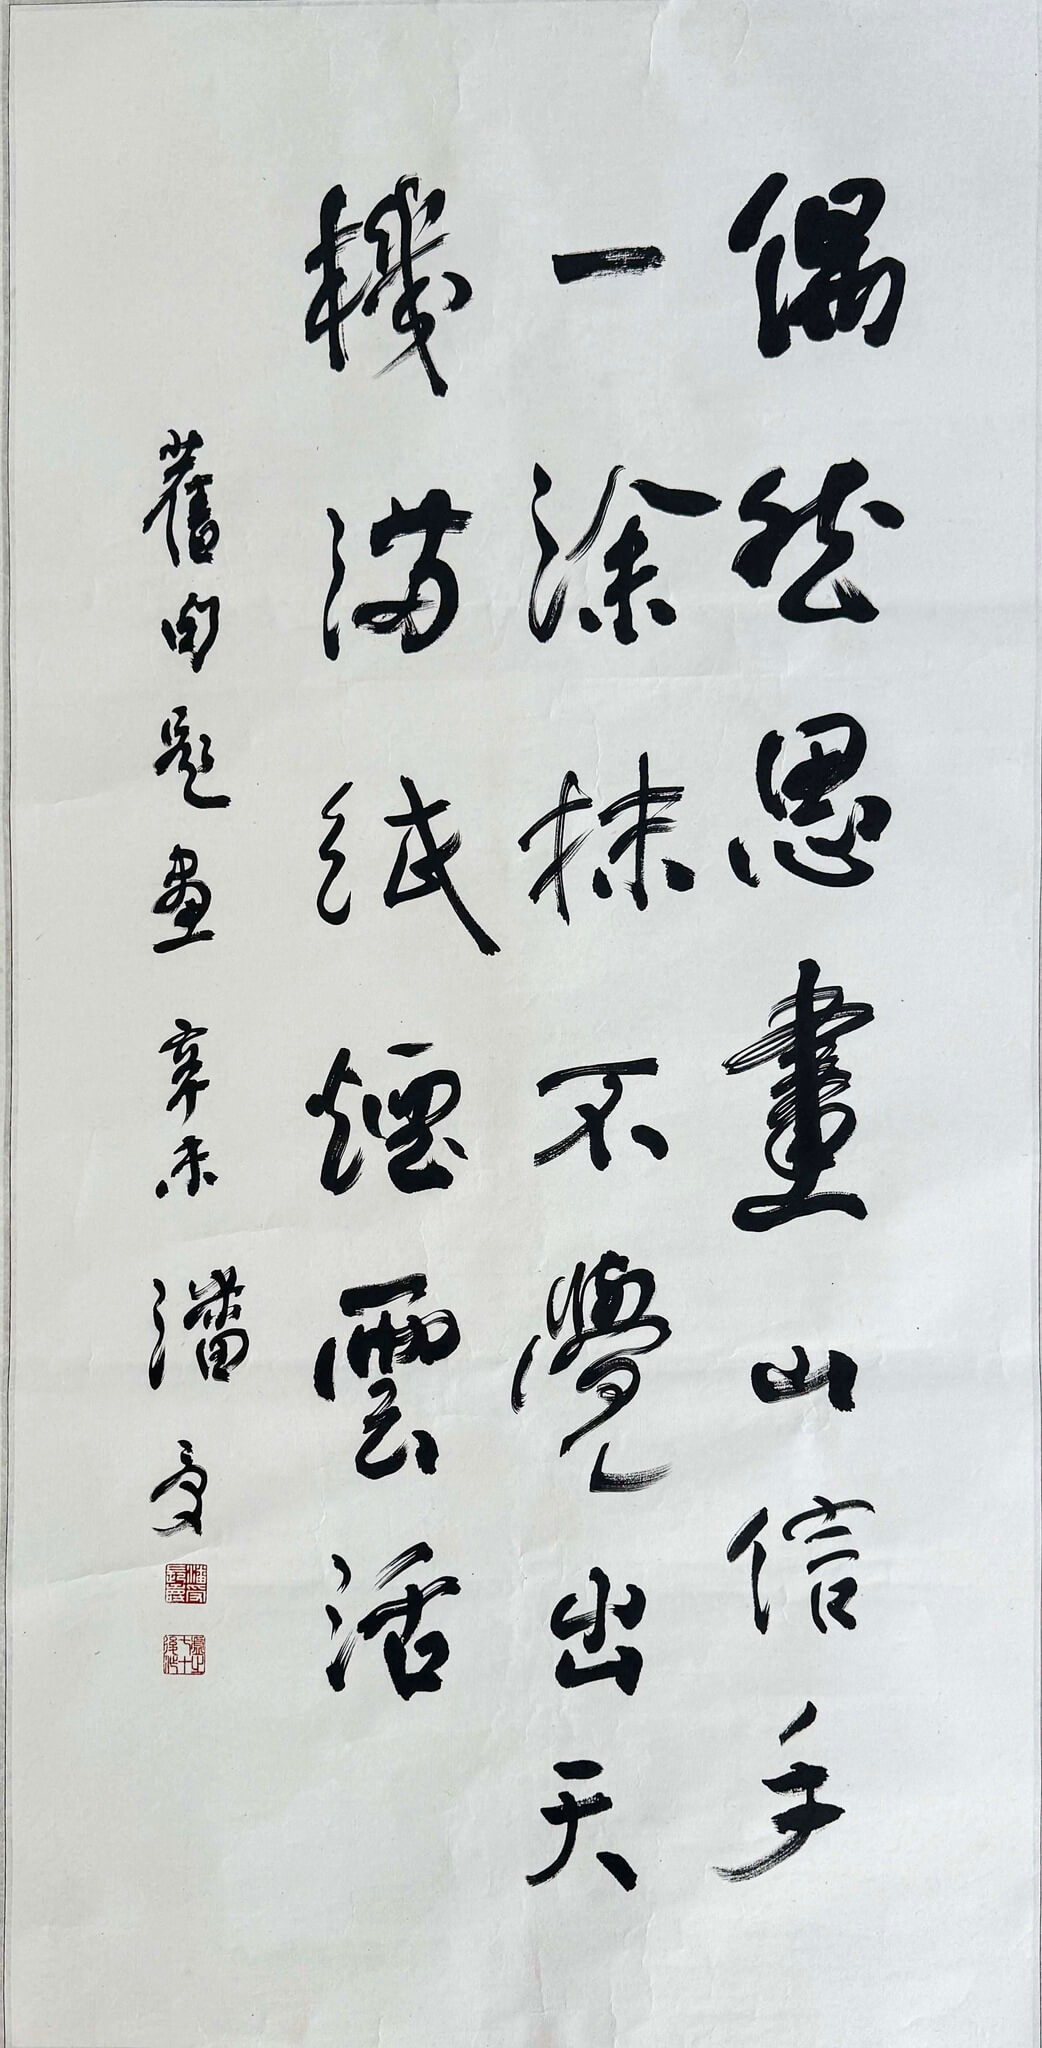 偶然思畫山信手
一涂抹不覺出天
機滿紙煙雲活
舊句題畫 辛未 潘受